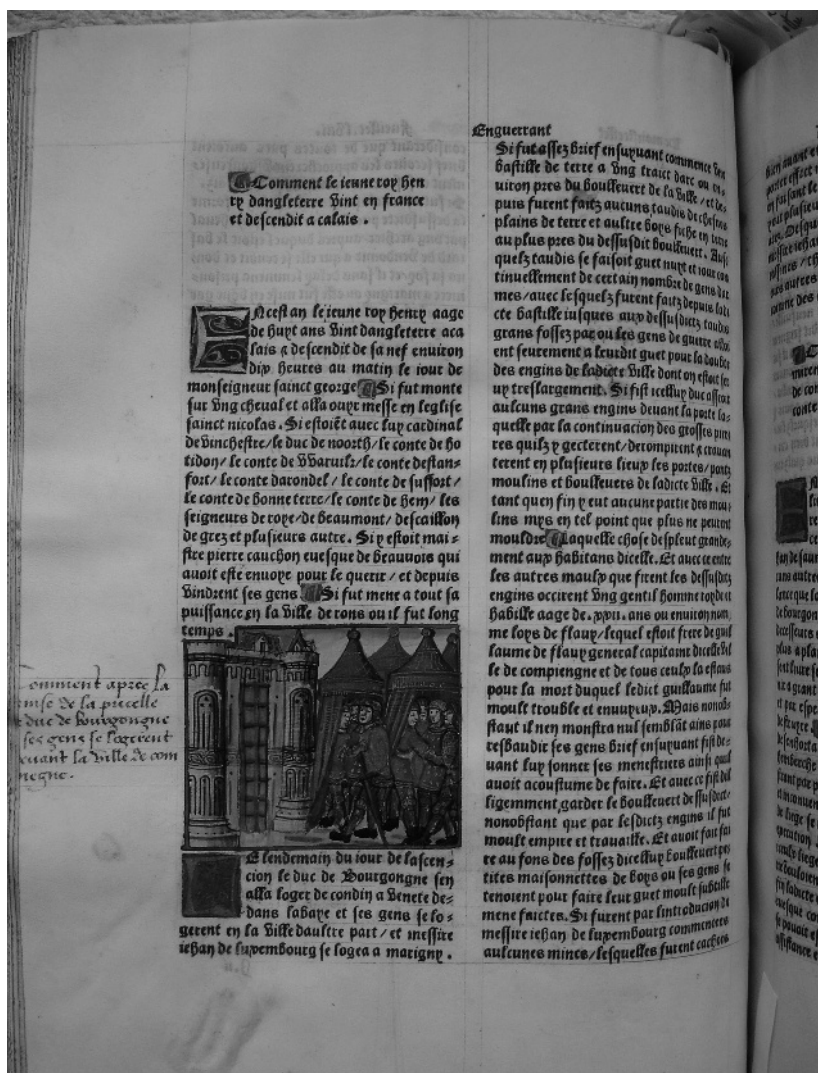 Enguerrant
Comment le ieune roy hen
ry dangleterre vint en france
et descendit a calais .
Ncest an le ieune roy henry aage
de huyt ans vint dangleterre aca
lais & descendit de sa nef enuiron
dix heures au matin le iour de
monseigneur sainct george Si fut monte
sur vng cheual et alla ouyr messe en leglise
sainct nicolas . Si estoiēt auec luy cardinal
de vinchestre/le duc de noorth/le conte de ho
tidon/le conte de vvaruilz/le conte destan-
fort/le conte darondel/le conte de suffort/
le conte de bonne terre/le conte de hem/les
seigneurs de roye/de beaumont/descaillon
de grez et plusieurs autre . Si y estoit mai-
stre pierre cauchon euesque de beauuois qui
auoit este enuoye pour le querir/et depuis
vindrent ses gens Si fut mene a tout sa
puissance en la ville de rons ou il fut long
temps .
Comment aprez la
prise de la pucelle
le duc de bourgongne
et ses gens se logerent
deuant la ville de com
piegne .
E lendemain du iour de lascen-
cion le duc de Bourgongne sen
alla loger de condin a venete de-
dans labaye et ses gens se lo-
gerent en la ville daultre part/et messire
iehan de luxembourg se logea a marigny .
Si fut assez brief ensuyuant commence vne
bastille de terre a vng traict darc ou en-
uiron pres du bouleuert de la ville/et de-
puis furent faitz aucuns taudis de chesnes
plains de terre et aultre boys fiche en terre
au plus pres du dessusdit bouleuert . Aus
quelz taudis se faisoit guet nuyt et iour con
tinuellement de certain nombre de gens dar
mes/auec lesquelz furent faitz depuis ladi
cte bastille iusques aux dessusdictz taudis
grans fossez par ou les gens de guerre alloi
ent seurement a leurdit guet pour la doubte
des engins de ladicte ville dont on estoit ser
uy treslargement . Si fist icelluy duc asseoir
aulcuns grans engins deuant la porte la-
quelle par la continuacion des grosses pier
res quilz y gecterent/derompirent & crauan
terent en plusieurs lieux les portes/pontz
moulins et bouleuers de ladicte ville . Et
tant quen fin y eut aucune partie des mou
lins mys en tel point que plus ne peurent
mouldre Laquelle chose despleut grande-
ment aux habitans dicelle . Et auec ce entre
les autres maulx que firent les dessusditz
engins occirent vng gentil homme royde et
habille aage de .xxii. ans ou enuiron nom
me loys de flauy/lequel estoit frere de guil
laume de flauy general capitaine dicelle vil
le de compiengne et de tous ceulx la estans
pour la mort duquel ledict guillaume fut
moult trouble et ennuyeux . Mais nonobs
stant il nen monstra nul semblāt ains pour
resbaudir ses gens brief ensuyuant fist de-
uant luy sonner ses menestriers ainsi quil
auoit acoustume de faire . Et auec ce fist dil
ligemment garder le bouleuert dessusdict/
nonobstant que par lesdictz engins il fut
moult empire et trauaille . Et auoit fait fai
re au fons des fossez dicelluy bouleuert pe
tites maisonnettes de boys ou ses gens se
tenoient pour faire leur guet moult subtille
mene faictes . Si furent par lintroducion de
messire iehan de luxembourg commencees
aulcunes mines/lesquelles furent cachees